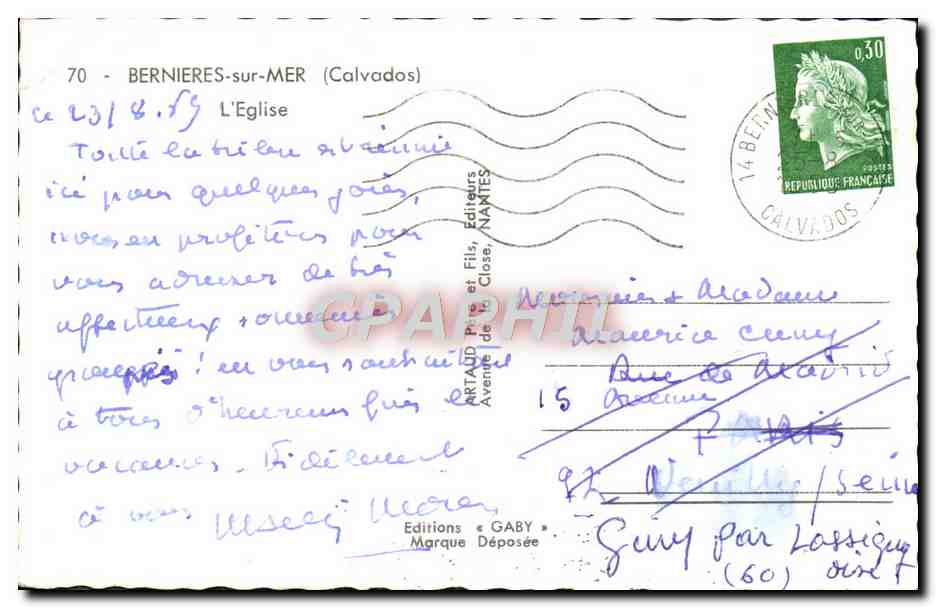 70 - BERNIERES-sur-MER (Calvados)
L'Eglise
ce 23/8.69
Toute la tribu
ici pour quelques joies,
nous en profitons pour
vous adresser de très
affectueux
! en vous souhaitant
à tous d'heureuse fin de
vacances. Fidèlement
à vous
ARTAUD Père et Fils, Editeurs
Avenue de la Close, NANTES
Editions « GABY »
Marque Déposée
0,30
POSTES
REPUBLIQUE FRANÇAISE
14 BERN
CALVADOS
CPARPHIL
Monsieur & Madame
Maurice Cuny
Rue de Madrid
15
Paris
92 Neuilly/Seine
par Lassigny
(60) Oise